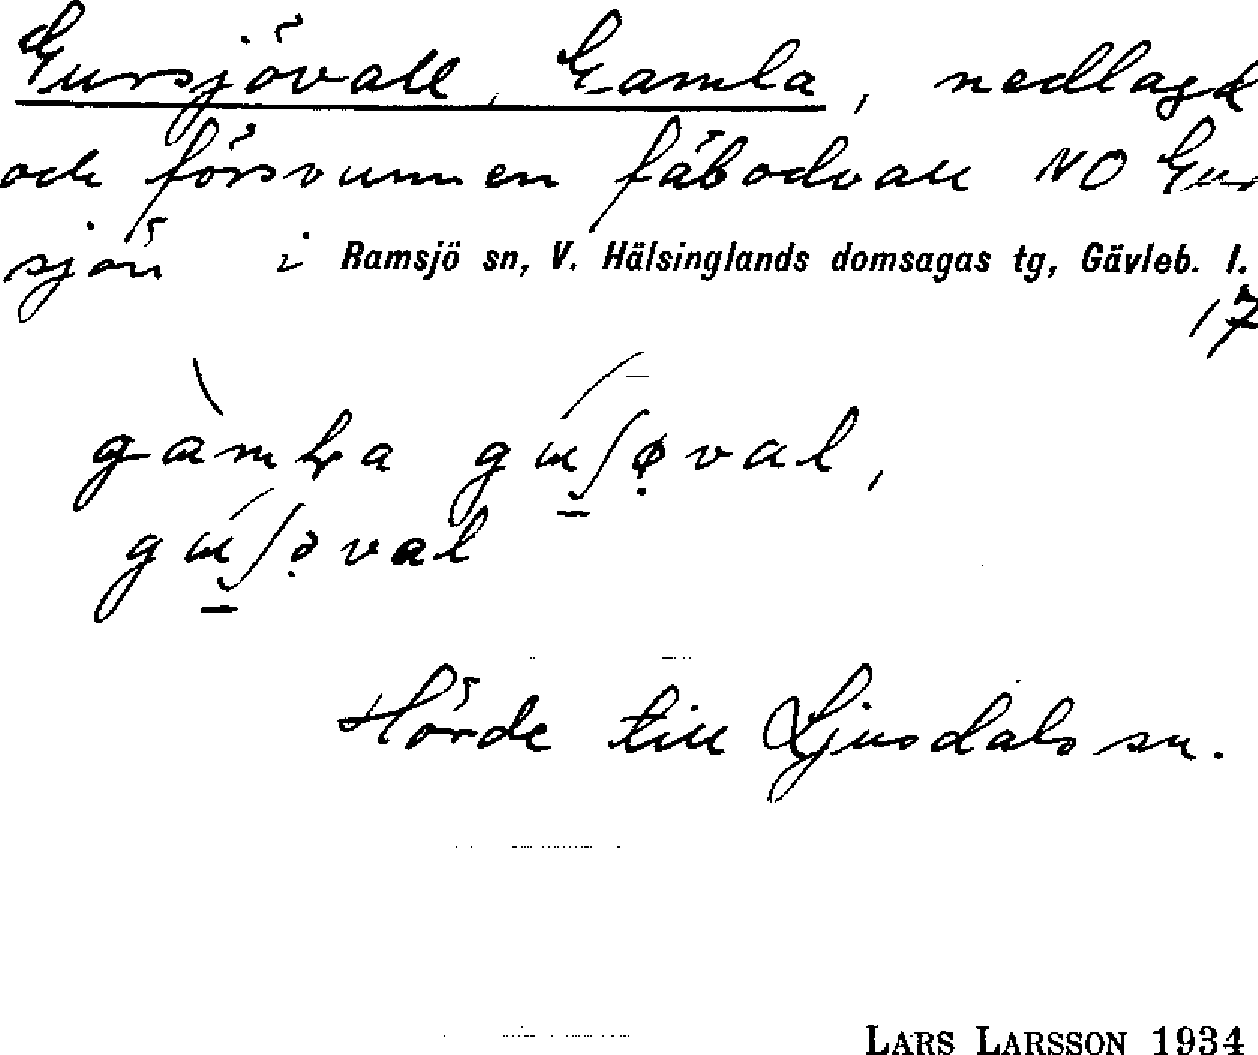 Gursjövall, Gamla, nedlagd
och försvunnen fäbodvall NO Gur
sjön i Ramsjö sn, V. Hälsinglands domsagas tg, Gävleb. l.
17
Hörde till Ljusdals sn.
LARS LARSSON 1934